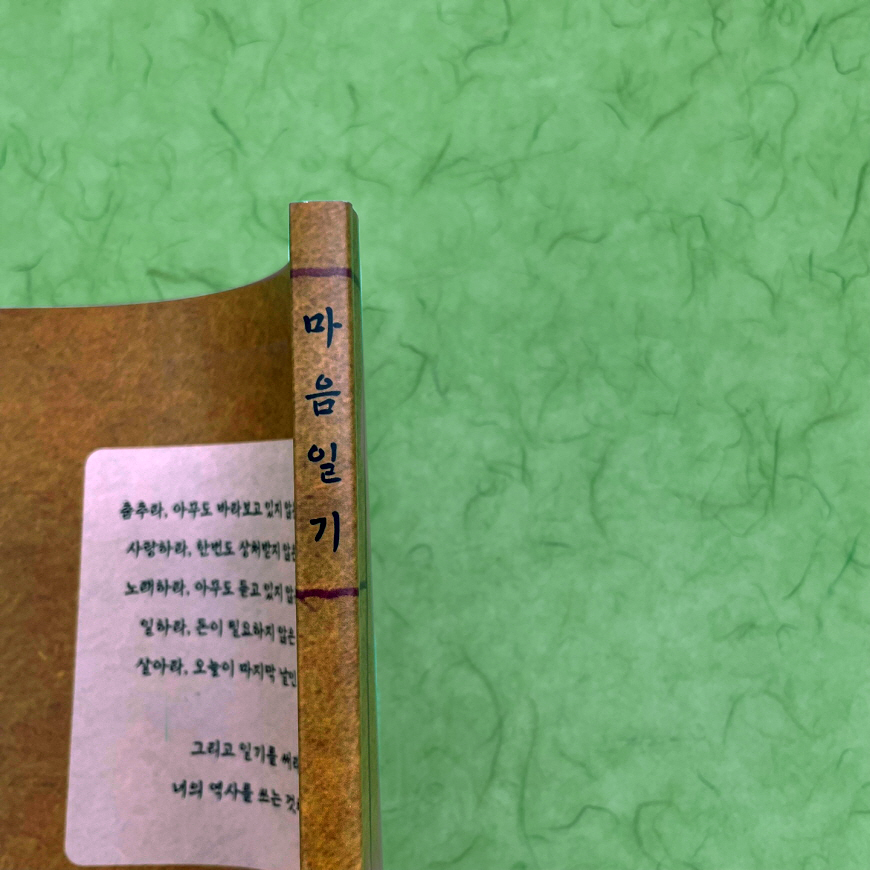 마음일기
춤추라, 아무도 바라보고 있지
사랑하라, 한번도 상처받지
노래하라, 아무도 듣고 있지
일하라, 돈이 필요하지 않은
살아라, 오늘이 마지막
그리고 일기를
너의 역사를 쓰는